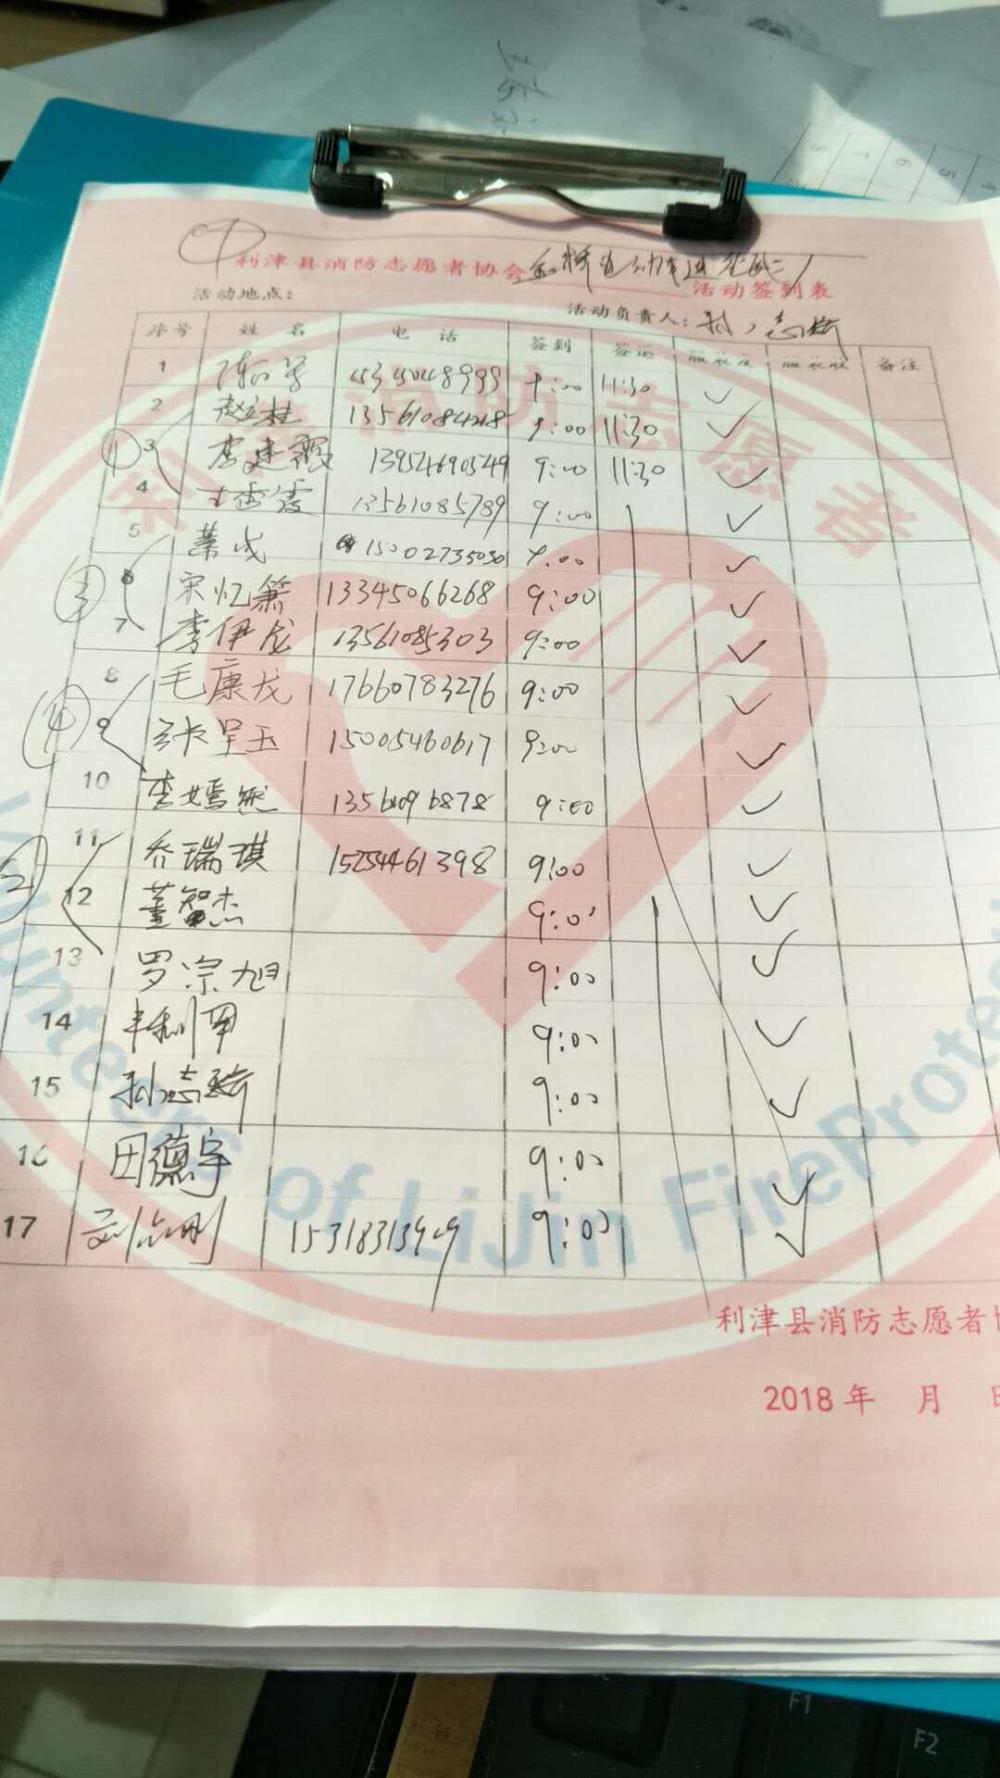 利津县消防志愿者协会
活动签到表
活动地点: 活动负责人: 孙志
序号 姓名 电话 签到 签退 服装发 服装收 备注
1 9:00 11:30 ✓
2 赵立桂 13561084218 9:00 11:30 ✓
① 3 李建霞 13954690549 9:00 11:30 ✓
4 13561085789 9:00 ✓
5 15002735030 9:00 ✓
③ 6 宋忆箫 13345066268 9:00 ✓
7 李伊龙 13561085303 9:00 ✓
8 毛康龙 17660783276 9:00 ✓
④ 9 张呈玉 15005460617 9:00 ✓
10 李嫣然 13561096878 9:00 ✓
11 乔瑞琪 15254461398 9:00 ✓
② 12 董智杰 9:00 ✓
13 罗宗旭 9:00 ✓
14 9:00 ✓
15 孙志 9:00 ✓
16 田德宇 9:00 ✓
17 15318313949 9:00 ✓
志愿者
Volunteers of LiJin FireProte
利津县消防志愿者协
2018年 月 日
F1
F2